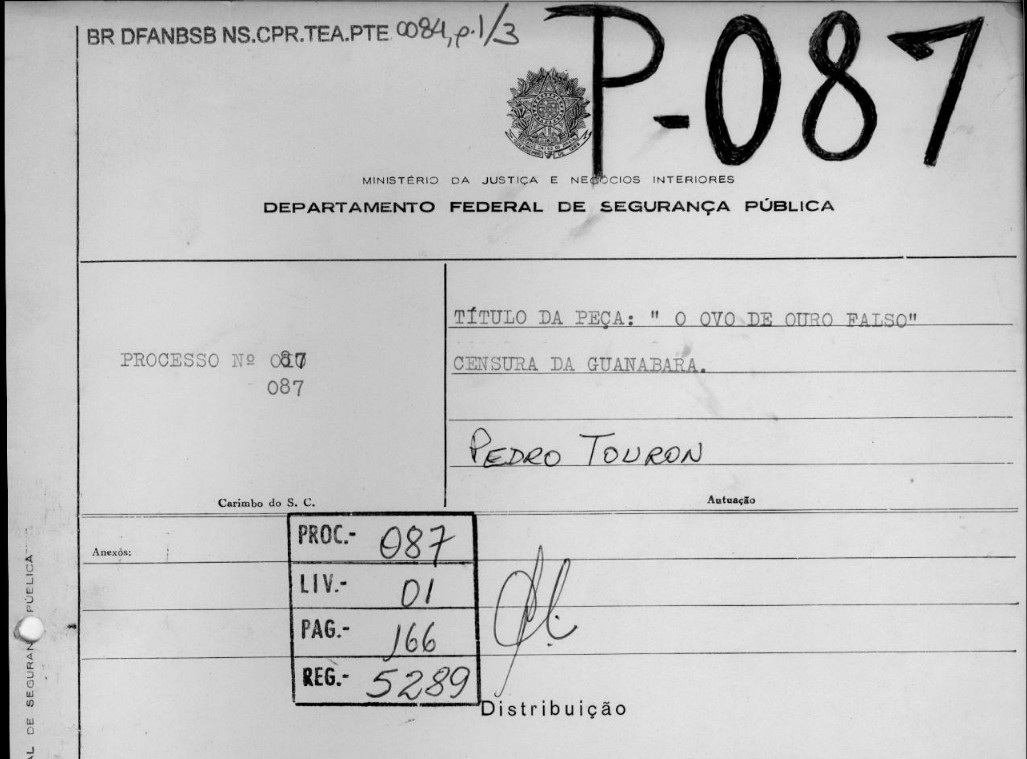 BR DFANBSB NS.CPR.TEA.PTE 0084, p.1/3
P-087
MINISTÉRIO DA JUSTIÇA E NEGÓCIOS INTERIORES
DEPARTAMENTO FEDERAL DE SEGURANÇA PÚBLICA
PROCESSO Nº
087
TÍTULO DA PEÇA: " O OVO DE OURO FALSO"
CENSURA DA GUANABARA.
PEDRO TOURON
Carimbo do S. C.
Autuação
Anexos:
PROC.- 087
LIV.- 01
PAG.- 166
REG.- 5289
Distribuição
AL DE SEGURAN PÚBLICA